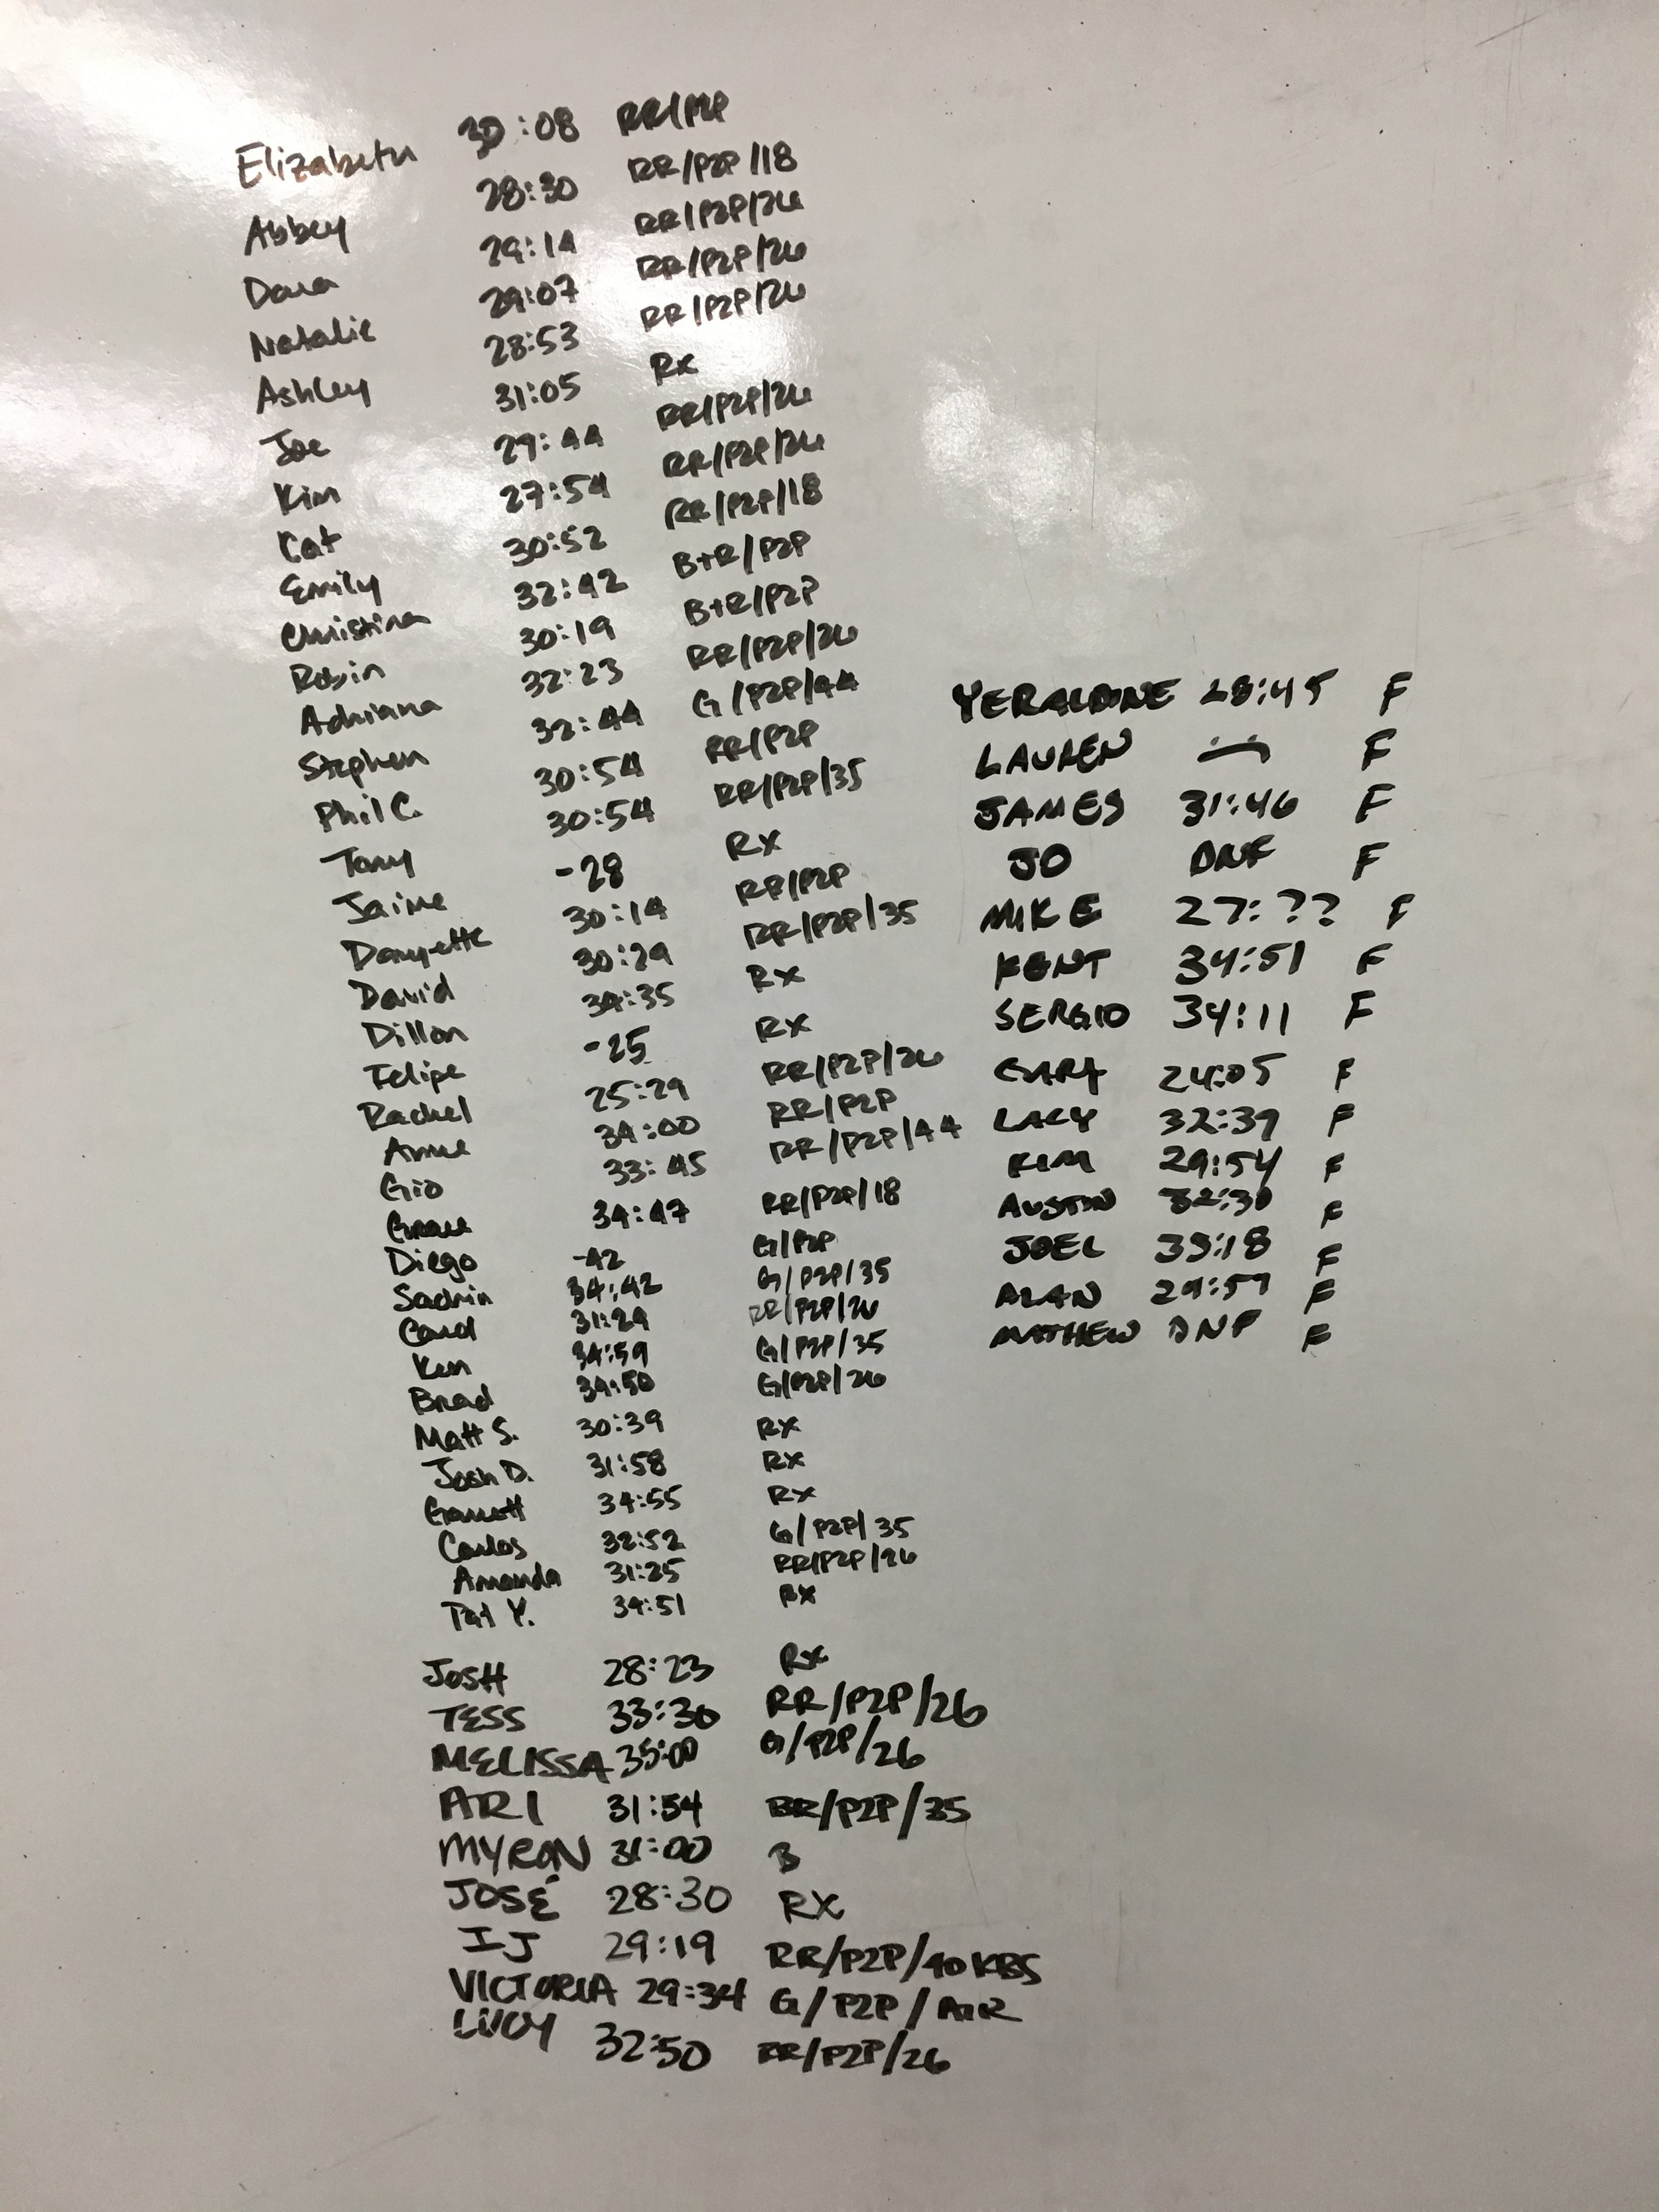 Elizabeth 30:08 RR/P2P
Abbey 28:30 RR/P2P/18
Dara 29:14 RR/P2P/26
Natalie 29:07 RR/P2P/26
Ashley 28:53 RR/P2P/26
Joe 31:05 Rx
Kim 29:44 RR/P2P/26
Cat 27:54 RR/P2P/26
Emily 30:52 RR/P2P/18
Christina 32:42 B+R/P2P
Robin 30:19 B+R/P2P
Adriana 32:23 RR/P2P/26
Stephen 32:44 G/P2P/44
Phil C. 30:54 RR/P2P
Tony 30:54 RR/P2P/35
Jaime -28 Rx
Danyette 30:14 RR/P2P
David 30:29 RR/P2P/35
Dillon 34:35 Rx
Felipe -25 Rx
Rachel 25:29 RR/P2P/26
Anne 34:00 RR/P2P
Gio 33:45 RR/P2P/44
Grace 34:47 RR/P2P/18
Diego -42 G/P2P
34:42 G/P2P/35
Carol 31:29 RR/P2P/26
Ken 34:59 G/P2P/35
Brad 34:50 G/P2P/26
Matt S. 30:39 Rx
Josh D. 31:58 Rx
Garrett 34:55 Rx
Carlos 32:52 G/P2P/35
Amanda 31:25 RR/P2P/26
Pat Y. 34:51 Rx
JOSH 28:23 Rx
TESS 33:30 RR/P2P/26
MELISSA 35:00 G/P2P/26
ARI 31:54 BR/P2P/35
MYRON 31:00 B
JOSÉ 28:30 RX
IJ 29:19 RR/P2P/40 KBS
VICTORIA 29:34 G/P2P/AIR
LUCY 32:50 RR/P2P/26
YERALDINE 28:45 F
LAUREN F
JAMES 31:46 F
JO DNF F
MIKE 27:?? F
KENT 34:51 F
SERGIO 34:11 F
GARY 24:05 F
LACY 32:39 F
KIM 29:54 F
AUSTIN 32:30 F
JOEL 33:18 F
ALAN 29:57 F
MATHEW DNF F